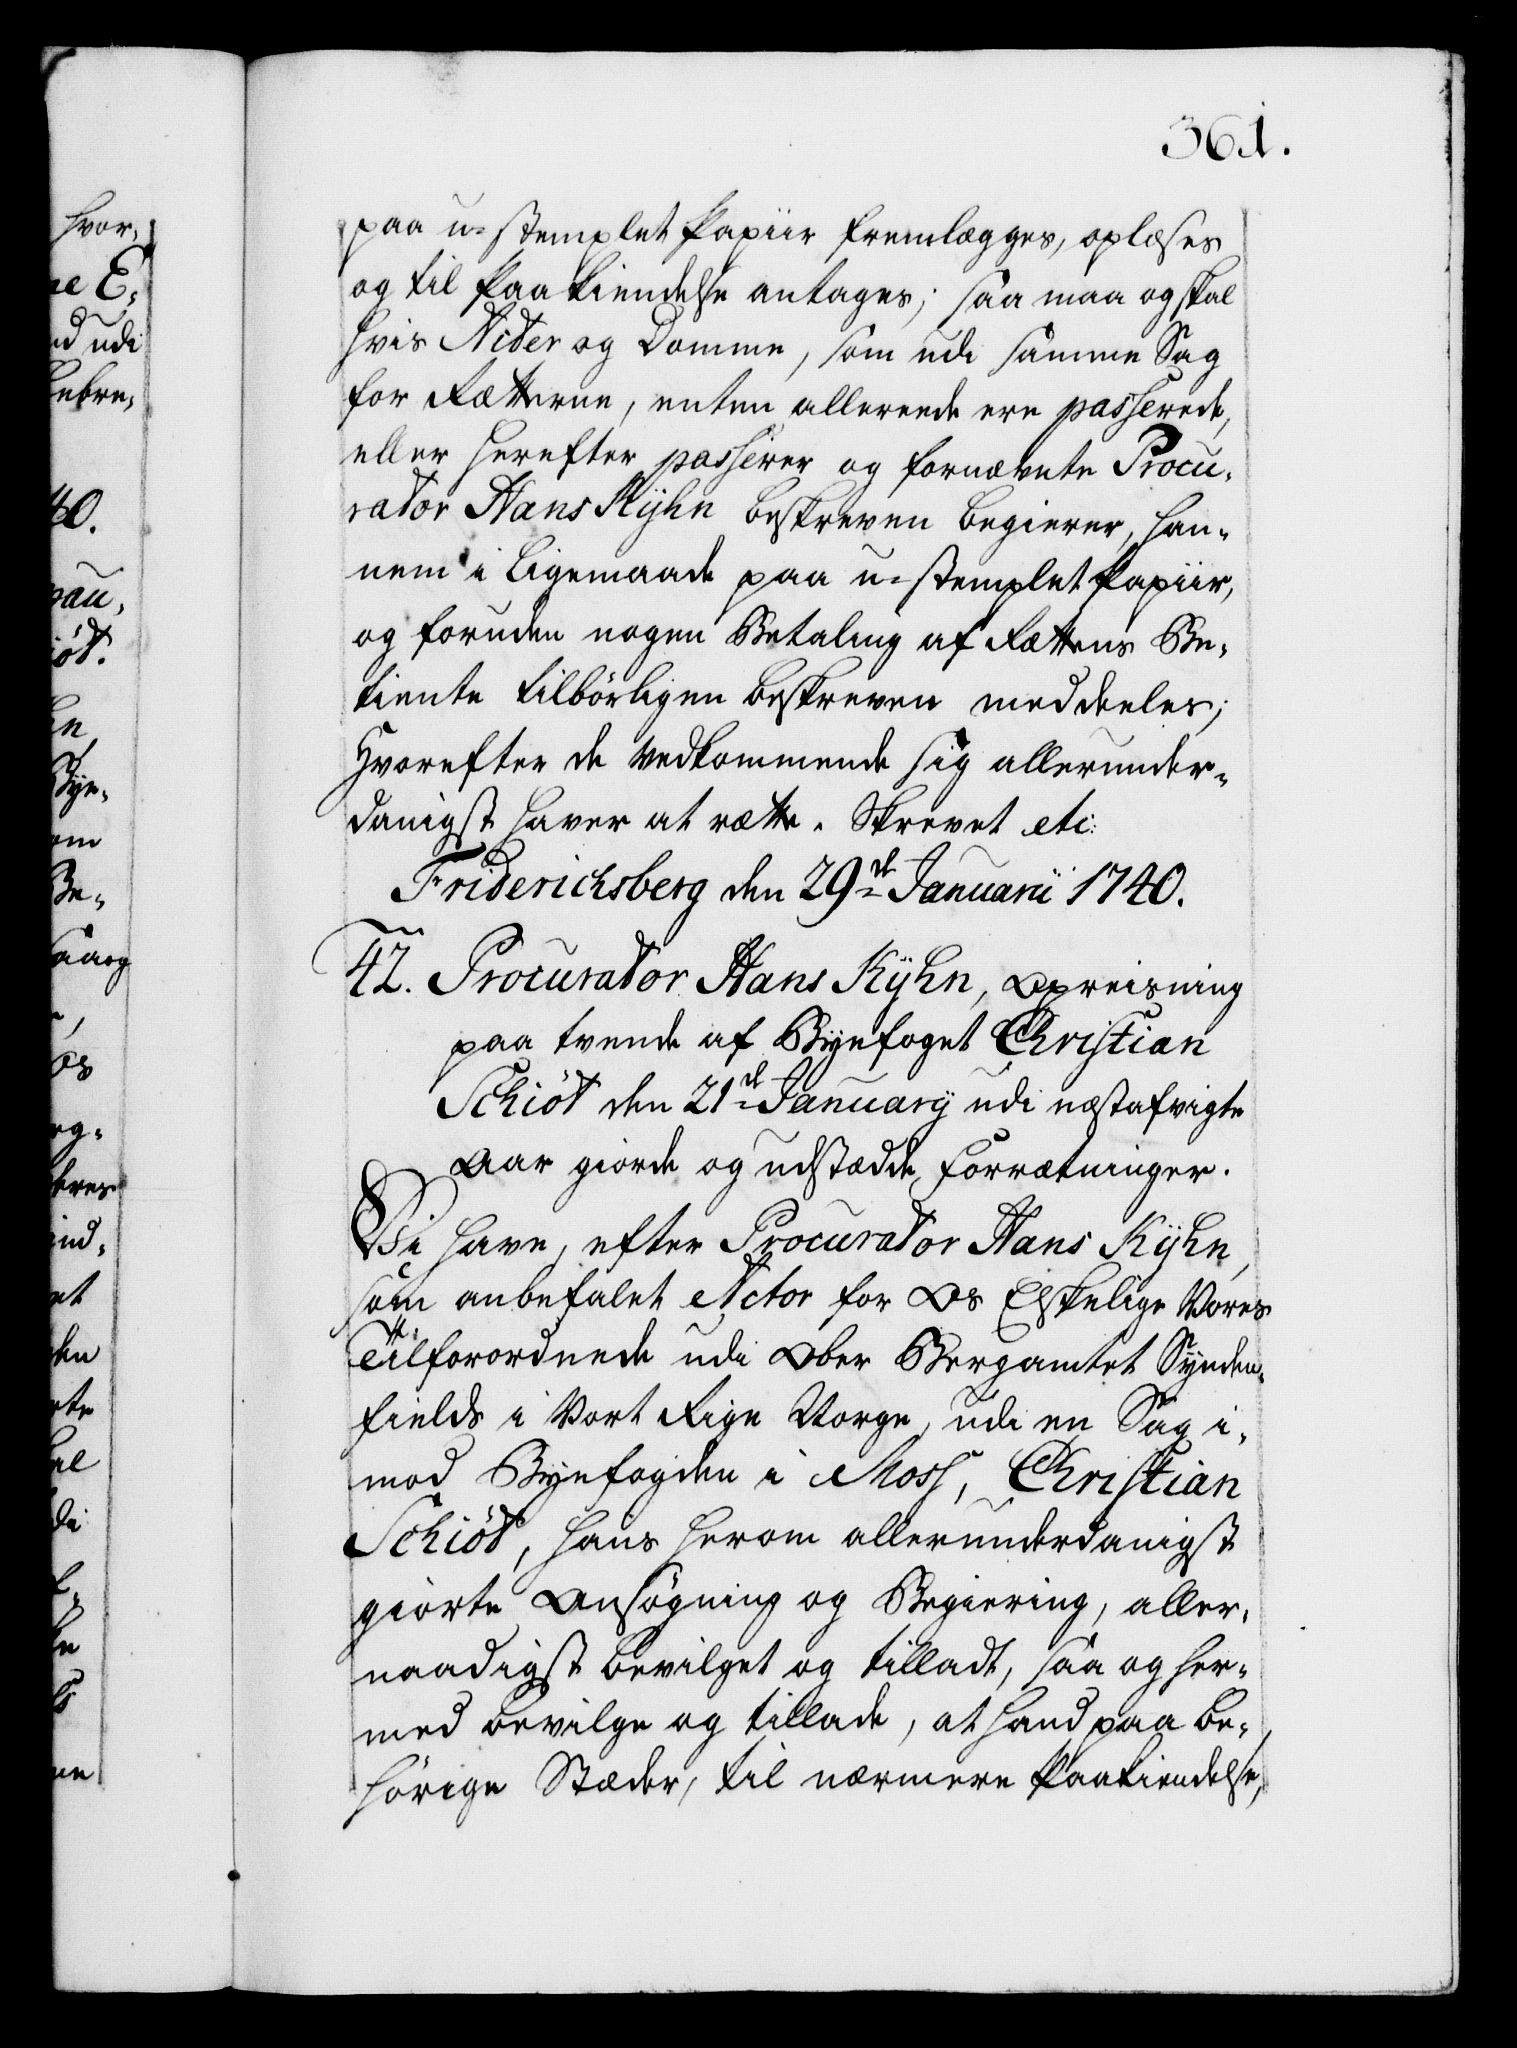 361.
hvor,
ne E,
nd udi
40.
pau,
iöt.
Bye,
om
Be,
saa og
paa u=stemplet Papiir fremlægges, oplæses
og til Paakiendelse antages; saa maa og skal
hvis Acter og Domme, som udi samme Sag
for Retterne, enten allereede ere passerede,
eller herefter passerer og fornævnte Procu,
rator Hans Kÿhn beskreven begierer, han,
nem i Ligemaade paa u=stemplet Papiir,
og foruden nogen Betaling af Rettens Be,
tiente tilbørligen beskreven meddeeles;
Hvorefter de Vedkommende sig allerunder,
danigst haver at rette. Skrevet etc:
Friderichsberg den 29de Januarii 1740.
42. Procurator Hans Kÿhn, Opreisning
paa tvende af Byefoget Christian
Schiöt den 21de Januarÿ udi næstafvigte
Aar giorde og udstædde Forrætninger.
Vi have, efter Procurator Hans Kÿhn,
som anbefalet Actor for Os Elskelige Vores
Tilforordnede udi Ober Bergamtet Synden,
fields i Vort Rige Norge, udi en Sag i,
mod Byefogden i Moss, Christian
Schiöt, hans herom allerunderdanigst
giorte Ansøgning og Begiering, aller,
naadigst bevilget og tilladt, saa og her,
med bevilge og tillade, at hand paa be,
hørige Stæder, til nærmere Paakiendelse,